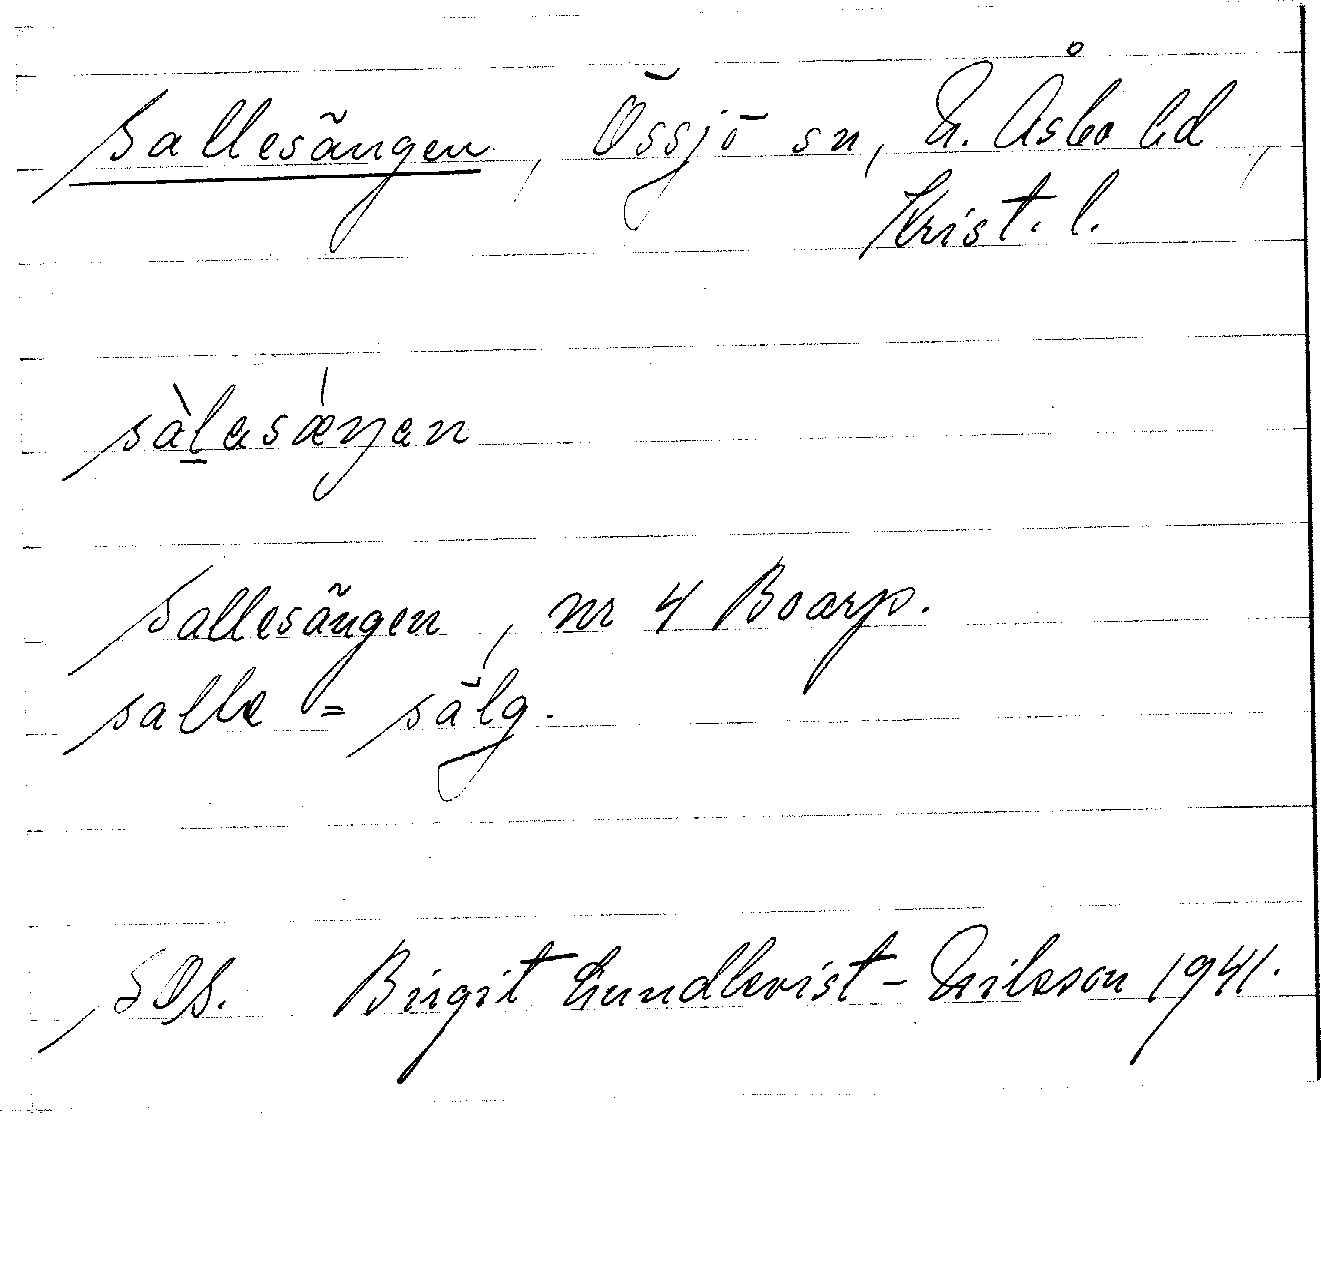 Sallesängen, Össjö sn, N. Åsbo hd,
Krist. l.
sàl̲əsǽŋən
Sallesängen, nr 4 Boarp.
salle = sälg.
SOS. Birgit Lundkvist-Nilsson 1941.